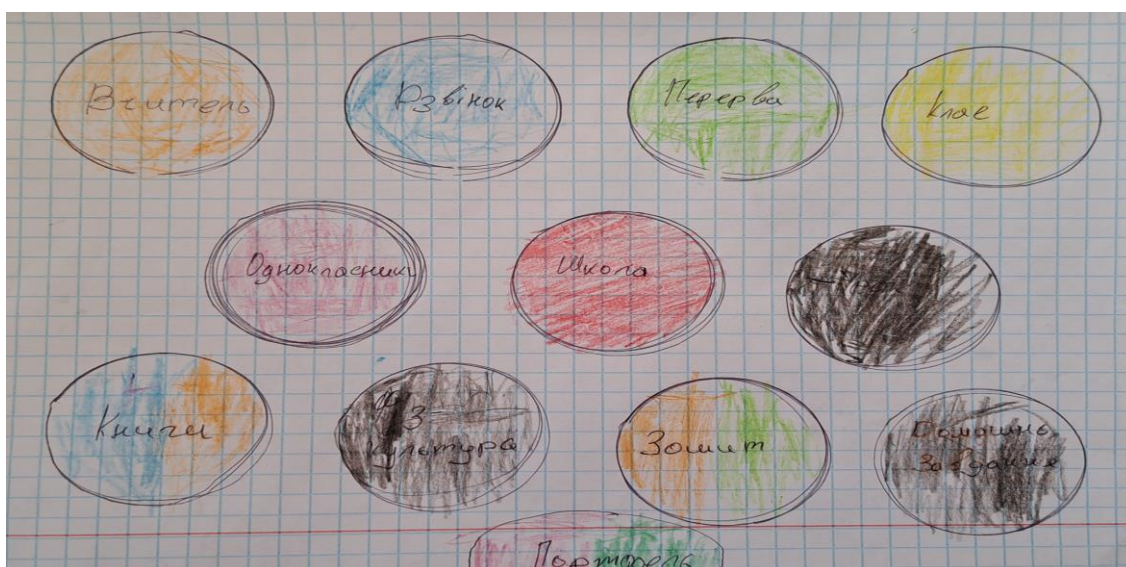 Вчитель
Дзвінок
Перерва
Клас
Однокласники
Школа
Книги
Фіз
культура
Зошит
Домашнє
Завдання
Портфель